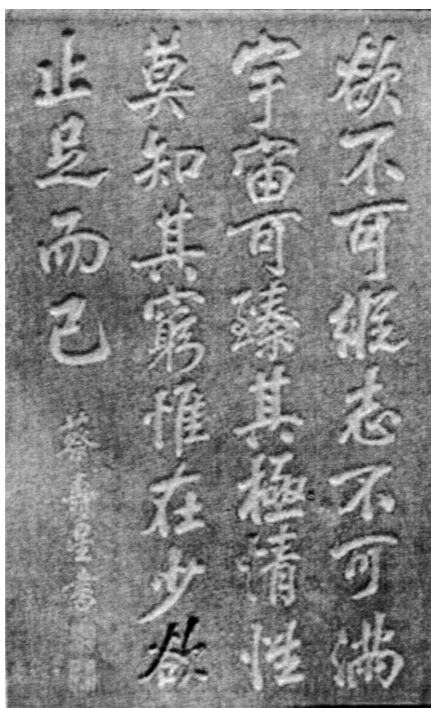 欲不可縱志不可滿
宇宙可臻其極清性
莫知其窮惟在少欲
止足而已
蔡壽星書